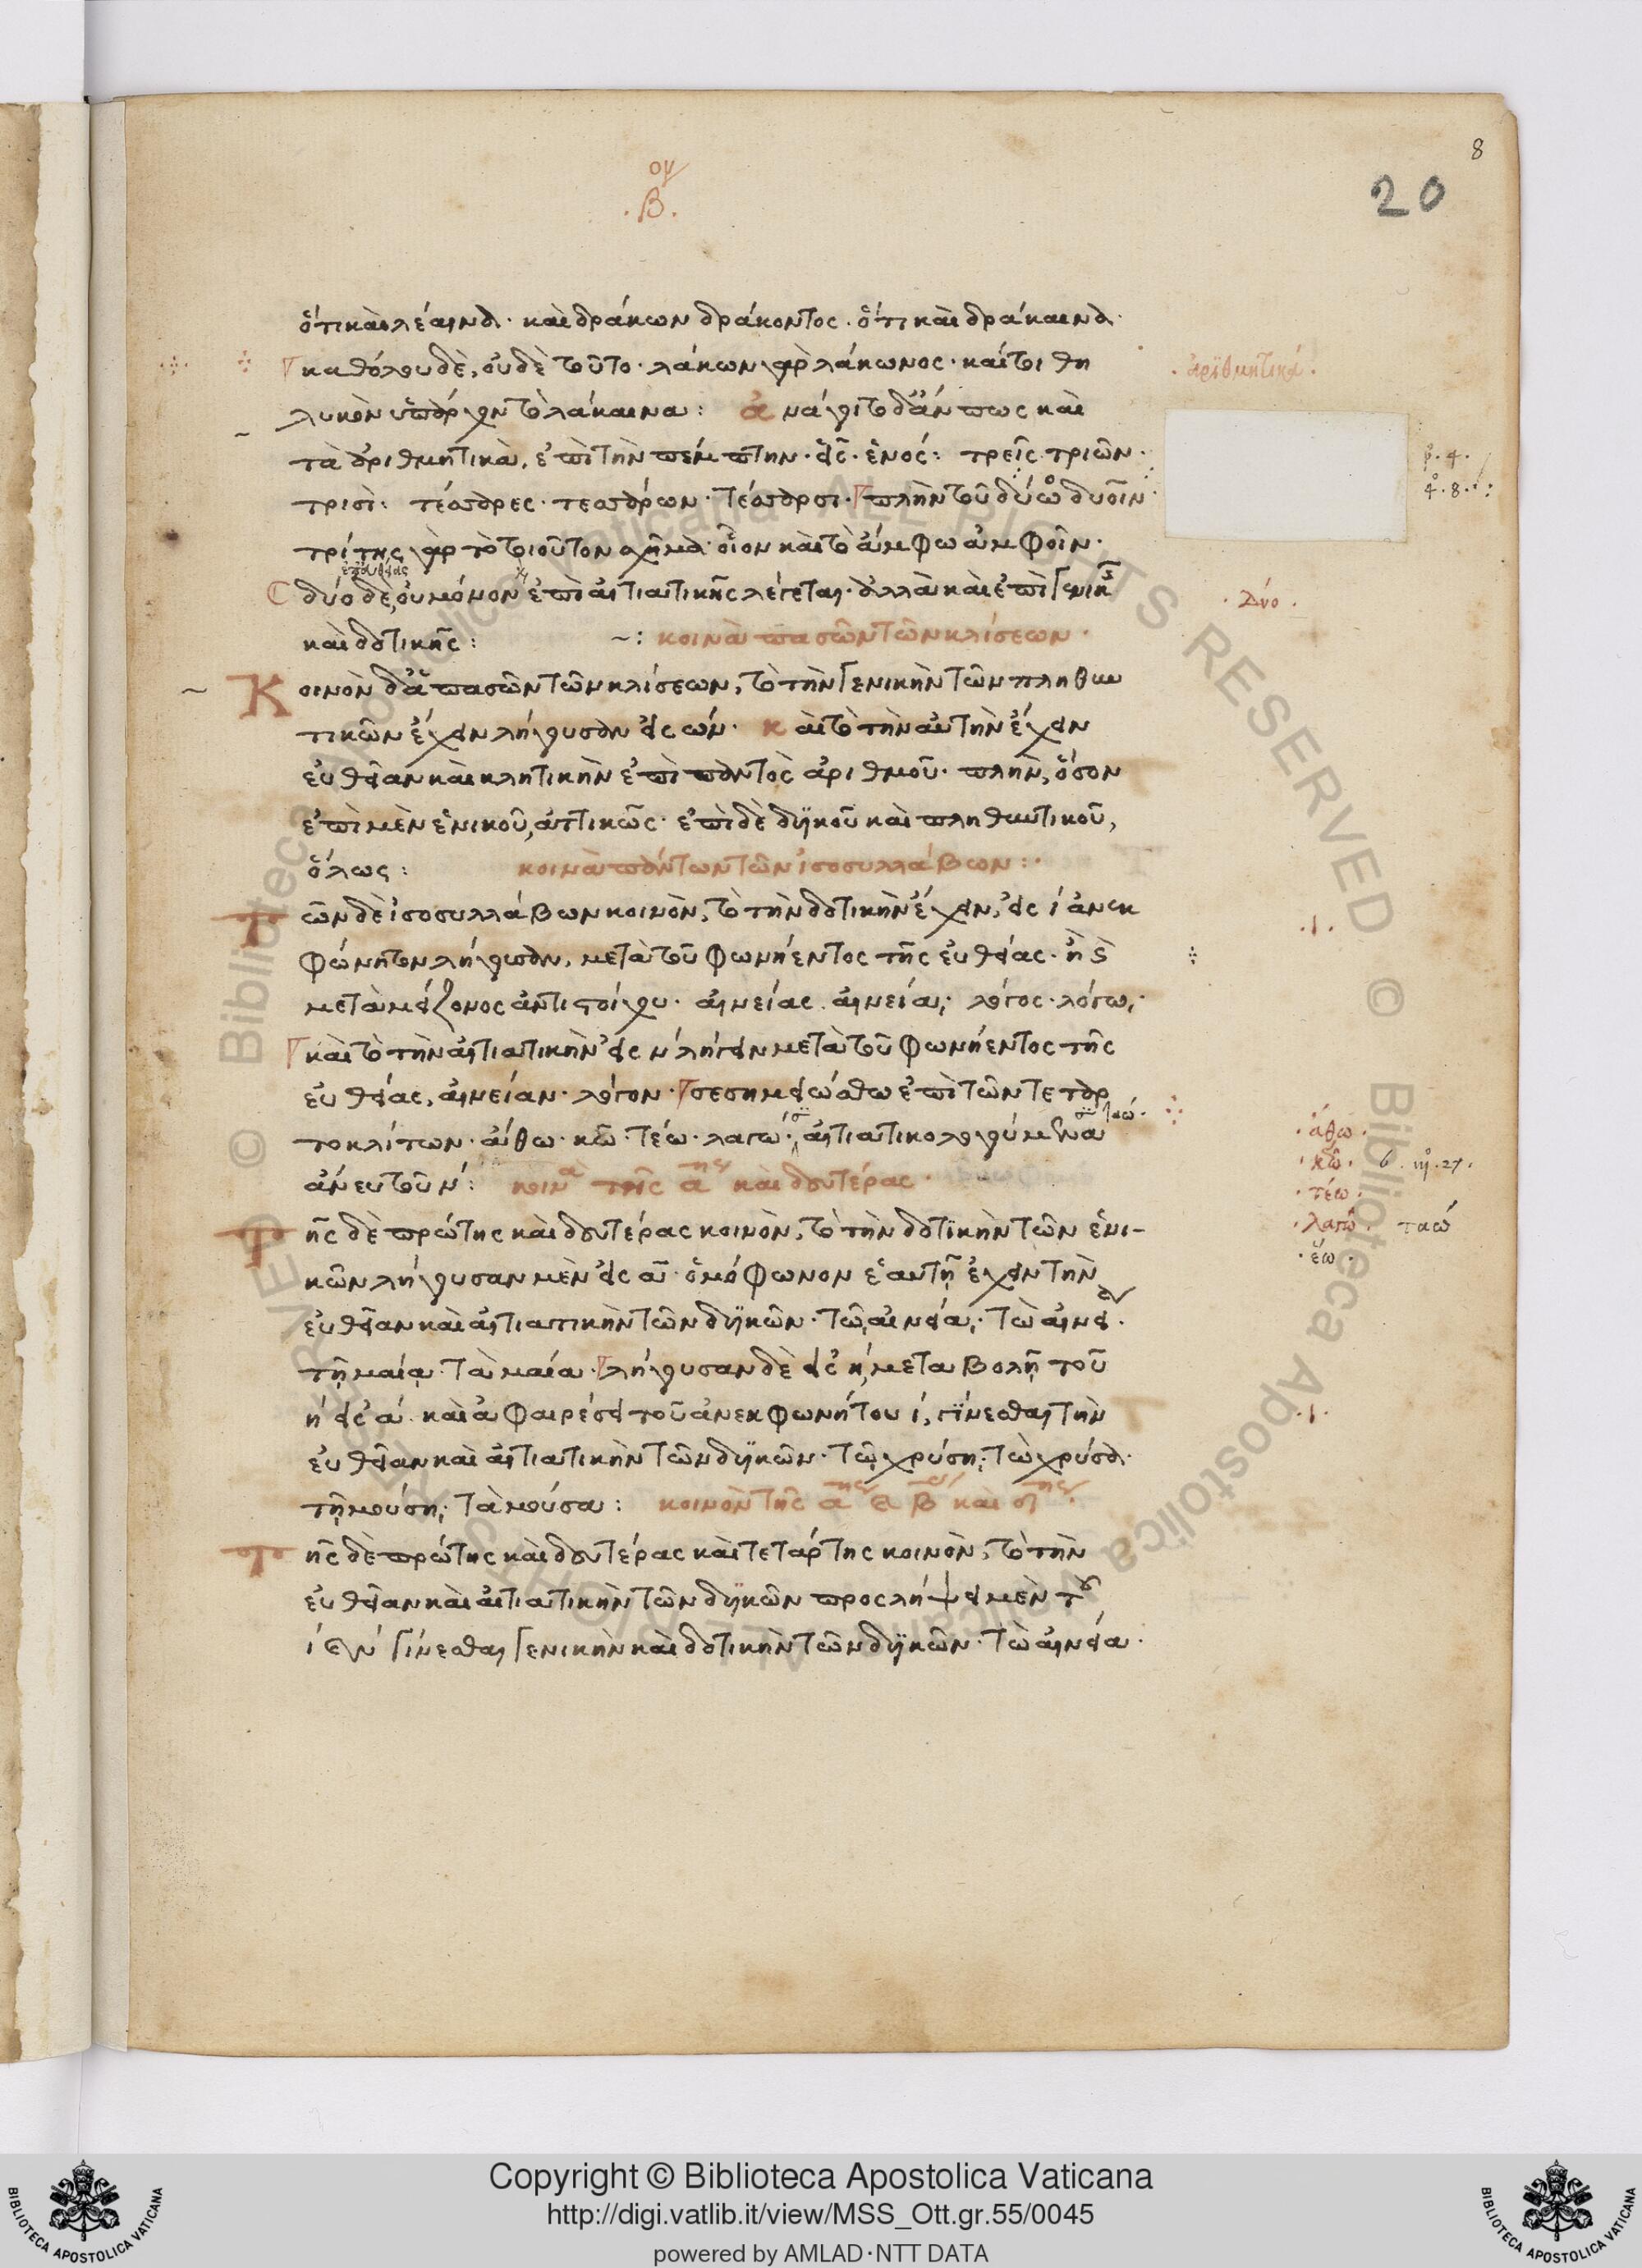 8
20
.β.
ὅτι καὶ λέαινα· καὶ δράκων δράκοντος· ὅτι καὶ δράκαινα·
καθόλου δὲ, οὐδὲ τοῦτο· λάκων γὰρ λάκωνος· καίτοι θη
· ἀριθμητικά ·
λυκὸν ὑπάρχει τὸ λάκαινα: ἀνάγοιτο δ' ἄν πως καὶ
τὰ ἀριθμητικὰ, ἐπὶ τὴν πέμπτην· εἷς· ἑνός: τρεῖς τριῶν·
τρισί: τέσσαρες· τεσσάρων· τέσσαρσι· πλὴν τοῦ δύω δυοῖν·
τρίτης γὰρ τὸ τοιοῦτον σχῆμα· οἷον καὶ τὸ ἄμφω ἀμφοῖν·
ἐπ' εὐθείας
δύο δὲ, οὐ μόνον ἐπὶ αἰτιατικῆς λέγεται· ἀλλὰ καὶ ἐπὶ γενικῆς
· Δύο ·
καὶ δοτικῆς: ~: κοινὰ πασῶν τῶν κλίσεων·
Κοινὸν δὲ πασῶν τῶν κλίσεων, τὸ τὴν γενικὴν τῶν πληθυν
τικῶν ἔχειν λήγουσαν εἰς ων· καὶ τὸ τὴν αὐτὴν ἔχειν
εὐθεῖαν καὶ κλητικὴν ἐπὶ παντὸς ἀριθμοῦ· πλὴν, ὅσον
ἐπὶ μὲν ἑνικοῦ, ἀττικῶς· ἐπὶ δὲ δυϊκοῦ καὶ πληθυντικοῦ,
ὅλως: κοινὰ πάντων τῶν ἰσοσυλλάβων:·
Τῶν δὲ ἰσοσυλλάβων κοινὸν, τὸ τὴν δοτικὴν ἔχειν, εἰς ί ἀνεκ
φώνητον λήγουσαν, μετὰ τοῦ φωνήεντος τῆς εὐθείας· ἢ
μετὰ μείζονος ἀντιστοίχου· αἰνείας αἰνείᾳ· λόγος· λόγῳ·
καὶ τὸ τὴν αἰτιατικὴν εἰς ν λήγειν μετὰ τοῦ φωνήεντος τῆς
εὐθείας, αἰνείαν· λόγον· σεσημειώσθω ἐπὶ τῶν τεταρ
τοκλίτων· ἄθω· κῶ· τέω· λαγώ· αἰτιατικ
ταώ·
· ἄθω ·
ἄνευ τοῦ ν: κοινὰ τῆς α´ης καὶ δευτέρας·
· κῶ · 6 · 27 ·
· τέω ·
Τῆς δὲ πρώτης καὶ δευτέρας κοινὸν, τὸ τὴν δοτικὴν τῶν ἑνι-
· λαγώ · ταώ
· ἕω ·
κῶν λήγουσαν μὲν εἰς α· ὁμόφωνον ἑαυτῇ ἔχειν τὴν
εὐθεῖαν καὶ αἰτιατικὴν τῶν δυϊκῶν· τῷ αἰνείᾳ· τὼ αἰνεία·
τῇ μαίᾳ· τὰ μαία· λήγουσαν δὲ εἰς ῃ, μεταβολῇ τοῦ
ή εἰς α· καὶ ἀφαιρέσει τοῦ ἀνεκφωνήτου ί, γίνεσθαι τὴν
εὐθεῖαν καὶ αἰτιατικὴν τῶν δυϊκῶν· τῷ χρύσῃ· τὼ χρύσα·
τῇ μούσῃ· τὰ μούσα: κοινὸν τῆς α´ης καὶ β´ας καὶ δ´ης·
Τῆς δὲ πρώτης καὶ δευτέρας καὶ τετάρτης κοινὸν, τὸ τὴν
εὐθεῖαν καὶ αἰτιατικὴν τῶν δυϊκῶν προσλήψει μὲν τοῦ
ί καὶ ν γίνεσθαι γενικὴν καὶ δοτικὴν τῶν δυϊκῶν· τὼ αἰνεία·
© Biblioteca Apostolica Vaticana ALL RIGHTS RESERVED
Copyright © Biblioteca Apostolica Vaticana
http://digi.vatlib.it/view/MSS_Ott.gr.55/0045
powered by AMLAD·NTT DATA
BIBLIOTECA APOSTOLICA VATICANA
BIBLIOTECA APOSTOLICA VATICANA